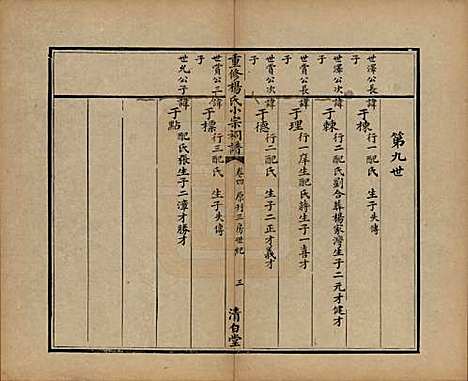 第九世
世澤公長諱
子
于棟
行一配氏 生子失傳
世澤公次諱
子
于棘
行二配氏劉合葬楊家灣生子二元才健才
世賞公長諱
子
于理
行一庠生配氏蔣生子一喜才
世賞公次諱
子
于德
行二配氏 生子二正才義才
重修楊氏小宗祠譜
卷四原刊三房世紀
三
清白堂
世賞公三諱
子
于標
行三配氏 生子失傳
世允公子諱
于
于點
配氏張生子二漳才勝才